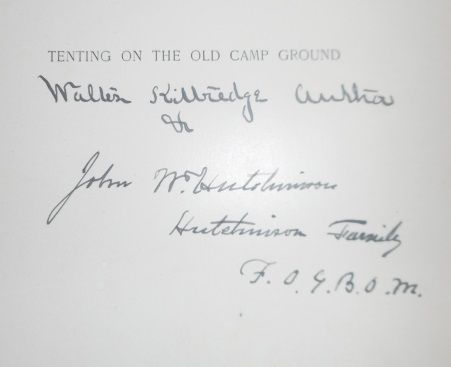 TENTING ON THE OLD CAMP GROUND
Walter Kittredge Author
&
John W. Hutchinson
Hutchinson Family
F. O. G. B. O. M.